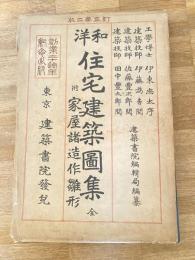 訂正第二版
工學博士 伊東忠太序
建築技師 伊藤為吉閲
建築技師 佐藤豊次郎閲
建築技師 田中豊太郎閲
建築書院編輯局編纂
和洋
住宅建築圖集 全
附 家屋諸造作雛形
東京 建築書院發兌